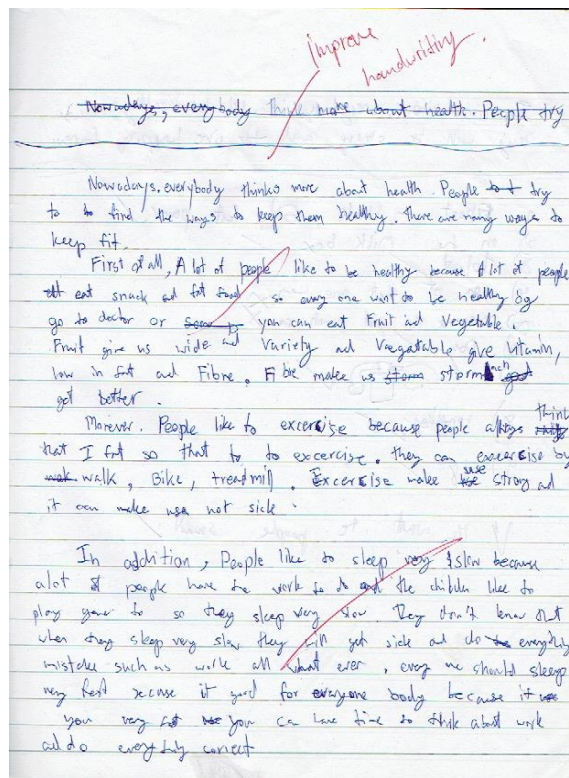 Improve
handwriting.
Nowadays, everybody think make about health. People try
Nowadays, everybody thinks more about health. People try
to to find the ways to keep them healthy. There are many ways to
keep fit.
First of all, A lot of people like to be healthy because A lot of people
eat snack ad fat food so every one want to be healthy by
go to doctor or you can eat Fruit ad Vegetable.
Fruit give us wide ad Variety ad Vegatable give Vitamin,
low in fat ad Fibre. Fibre make us
got better.
Morever. People like to excercise because people always think
that I fat so that to to excercise. they can excercise by
walk, Bike, treadmill. Excercise make use strong ad
it can make use not sick.
In addition, People like to sleep very slow because
a lot of people have to work to do and the childen like to
play game to so they sleep very slow. They don't know that
when they sleep very slow they will get sick ad do everything
mistake such as work all what ever. every one should sleep
very fast because it good for everyone body because it
you very you can have time to think about work
ad do everything correct